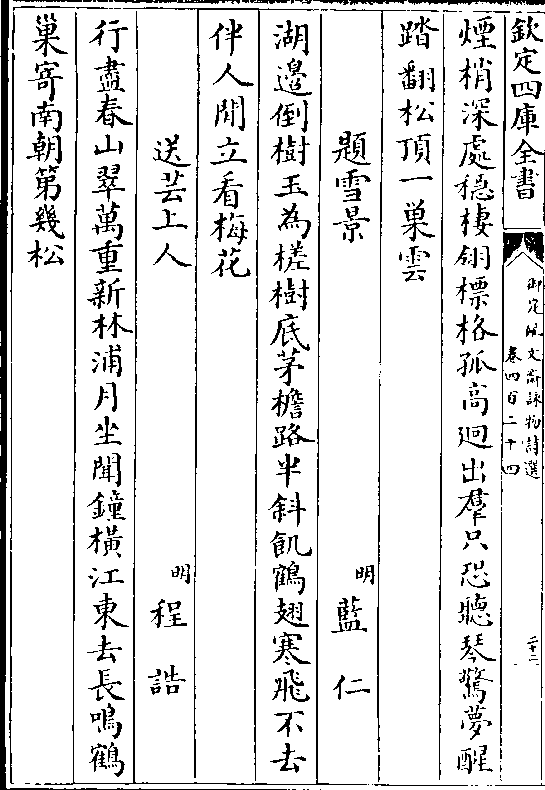 欽定四庫全書
御定佩文齋詠物詩選
卷四百二十四
二十二
煙梢深處穏棲翎標格孤高迥出羣只恐聽琴驚夢醒
踏翻松頂一巢雲
題雪景
明
藍仁
湖邉倒樹玉為槎樹底茅檐路半斜飢鶴翅寒飛不去
伴人閒立看梅花
送芸上人
明
程誥
行盡春山翠萬重新林浦月坐聞鐘橫江東去長鳴鶴
巢寄南朝第幾松